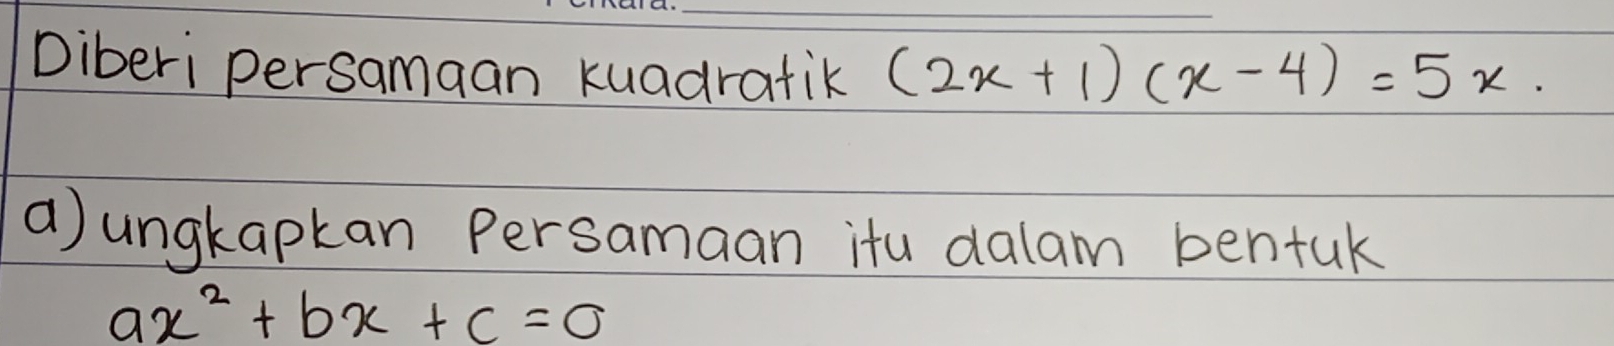 Perkara:
Diberi persamaan kuadratik (2x + 1) (x - 4) = 5x.
a) ungkapkan Persamaan itu dalam bentuk
ax² + bx + c = 0